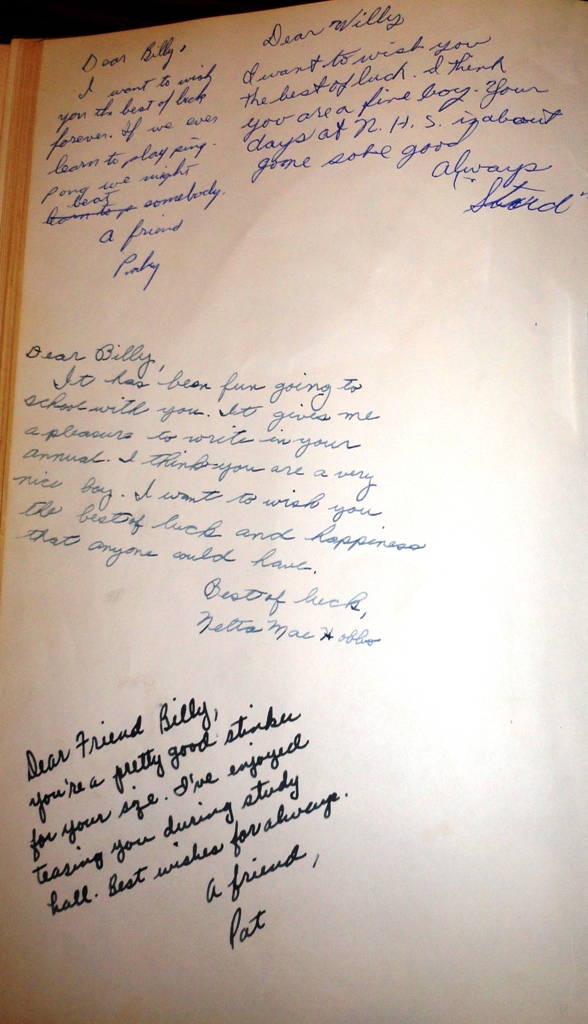 Dear Billy,
I want to wish
you the best of luck
forever. If we ever
learn to play ping-
pong we might
beat
learn to p somebody.
a friend
Dear Willy
I want to wish you
the best of luck. I think
you are a fine boy. Your
days at N. H. S. is about
gone so be good
Always
Dear Billy,
It has been fun going to
school with you. It gives me
a pleasure to write in your
annual. I think you are a very
nice boy. I want to wish you
the best of luck and happiness
that anyone could have.
Best of luck,
Netta Mae Hobbs
Dear Friend Billy,
you're a pretty good stinker
for your size. I've enjoyed
teasing you during study
hall. Best wishes for always.
a friend,
Pat